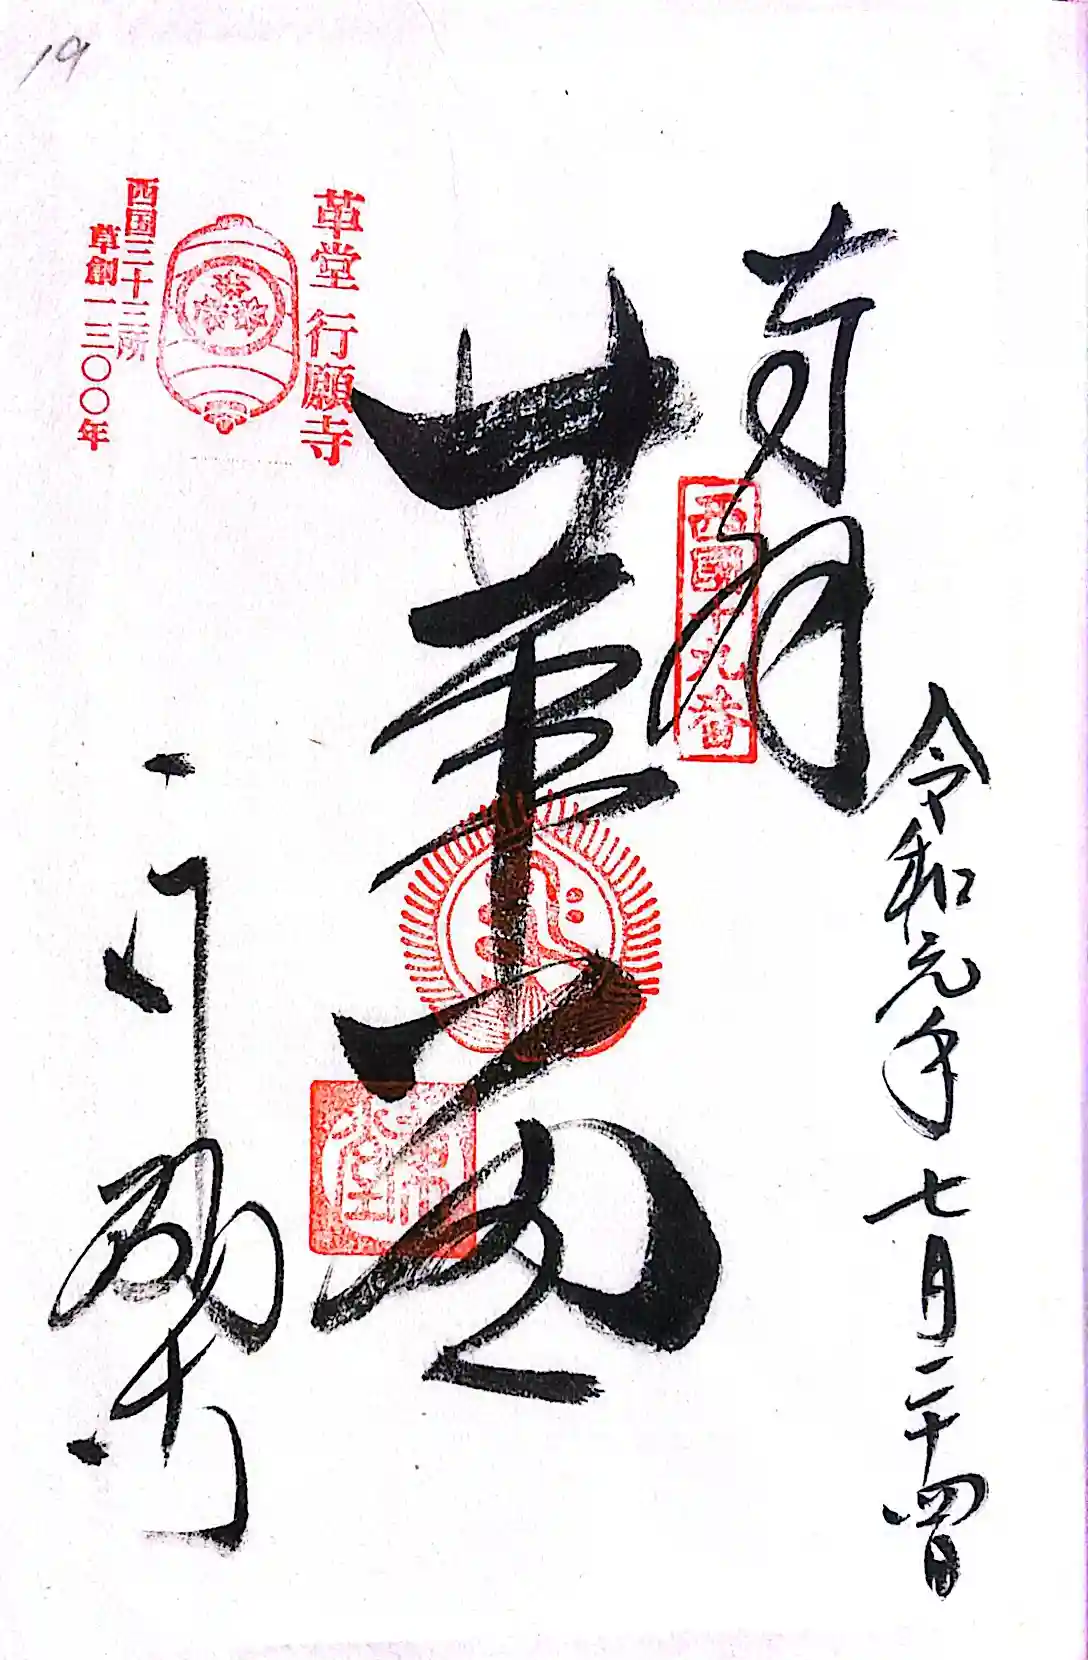 奉拝
西国十九番
令和元年七月二十四日
革堂
行願寺
革堂 行願寺
西国三十三所
草創一三〇〇年
19